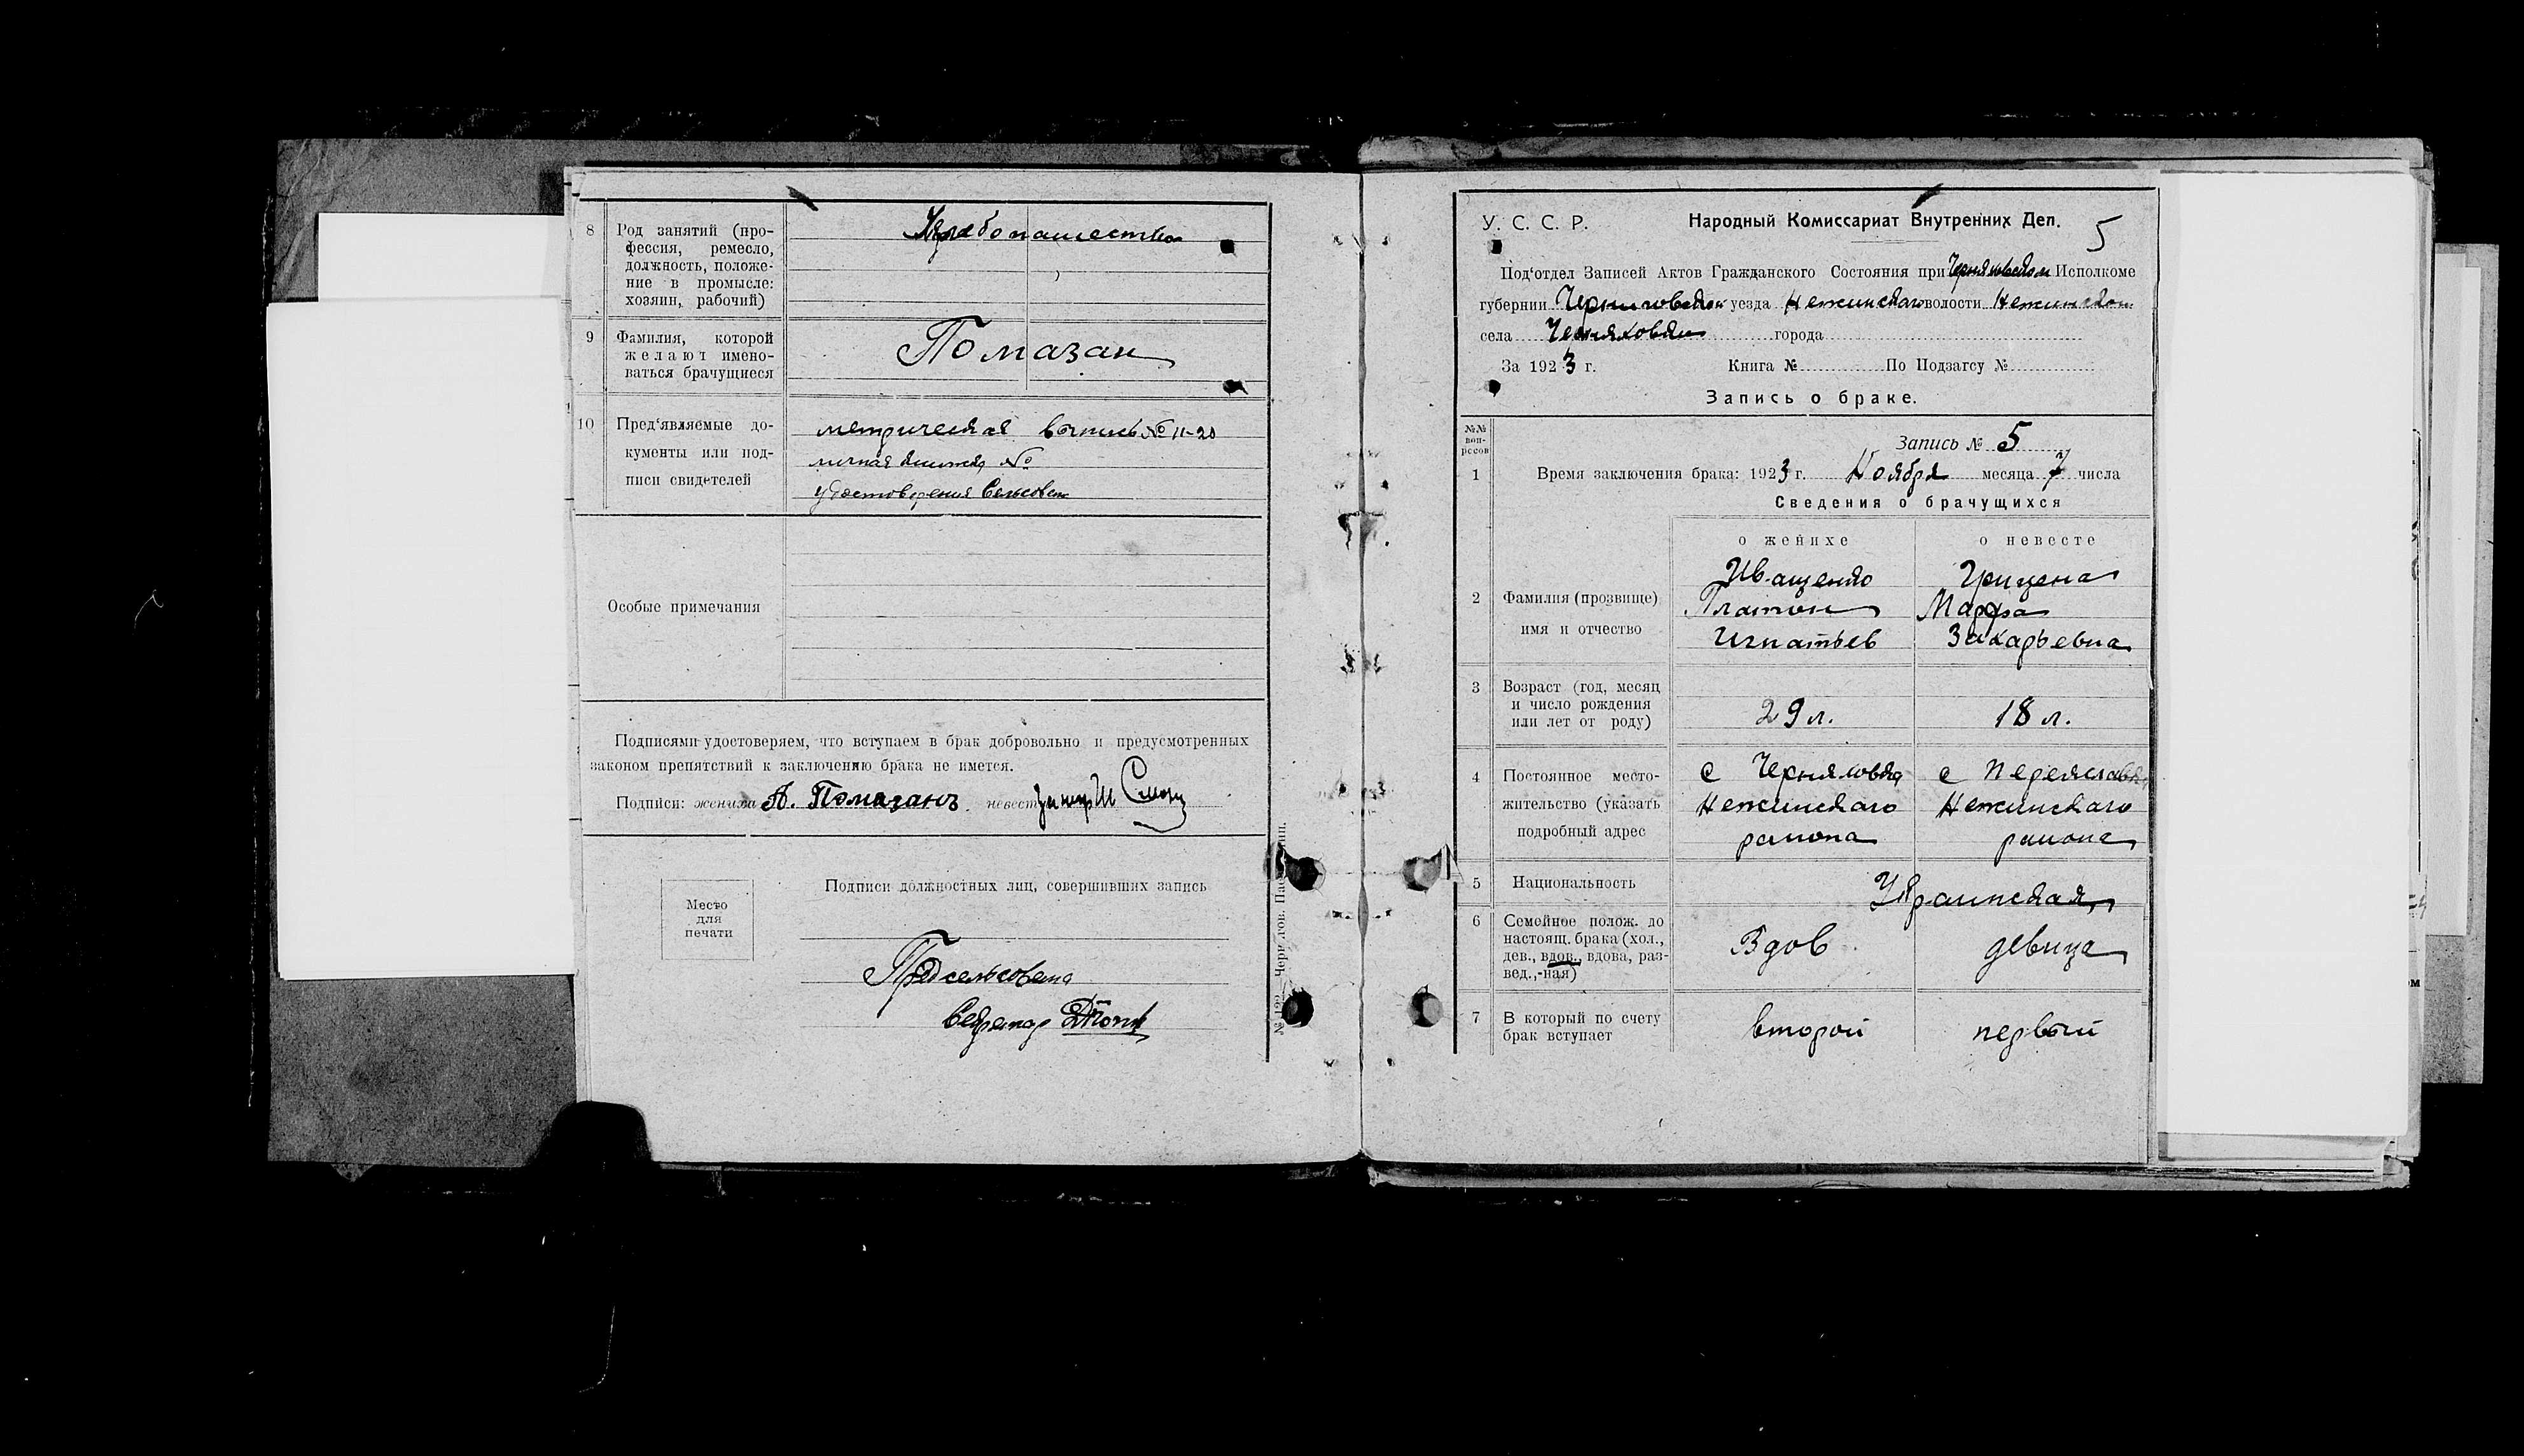 8 Род занятий (про-
фессия, ремесло,
должность, положе-
ние в промысле:
хозяин, рабочий)
Хлебопашество
9 Фамилия, которой
желают имено-
ваться брачущиеся
Помазан
10 Пред‘являемые до-
кументы или под-
писи свидетелей
метрическая выпись № 11-20
личная книжка №
удостоверения Сельсовета
Особые примечания
Подписями удостоверяем, что вступаем в брак добровольно и предусмотренных
законом препятствий к заключению брака не имется.
Подписи: жениха А. Помазанъ невесты
Место
для
печати
Подписи должностных лиц, совершивших запись
Предсельсовета
Секретар
У. С. С. Р. Народный Комиссариат Внутренних Дел. 5
Под‘отдел Записей Актов Гражданского Состояния при Черняховском Исполкоме
губернии Черниговской уезда Нежинскаго волости Нежинской
села Черняховки города
За 1923 г. Книга № По Подзагсу №
Запись о браке.
№№
воп-
росов
Запись № 5
1 Время заключения брака: 1923 г. Ноября месяца 7 числа
Сведения о брачущихся
о женихе о невесте
2 Фамилия (прозвище)
имя и отчество
Иващенко
Платон
Игнатьев
Грицена
Марфа
Захарьевна
3 Возраст (год, месяц
и число рождения
или лет от роду)
29 л. 18 л.
4 Постоянное место-
жительство (указать
подробный адрес
с Черняховка
Нежинскаго
района
с Переяславка
Нежинскаго
района
5 Национальность Украинская
6 Семейное полож. до
настоящ. брака (хол.,
дев., вдов., вдова, раз-
вед.,-ная)
Вдов девица
7 В который по счету
брак вступает
второй первый